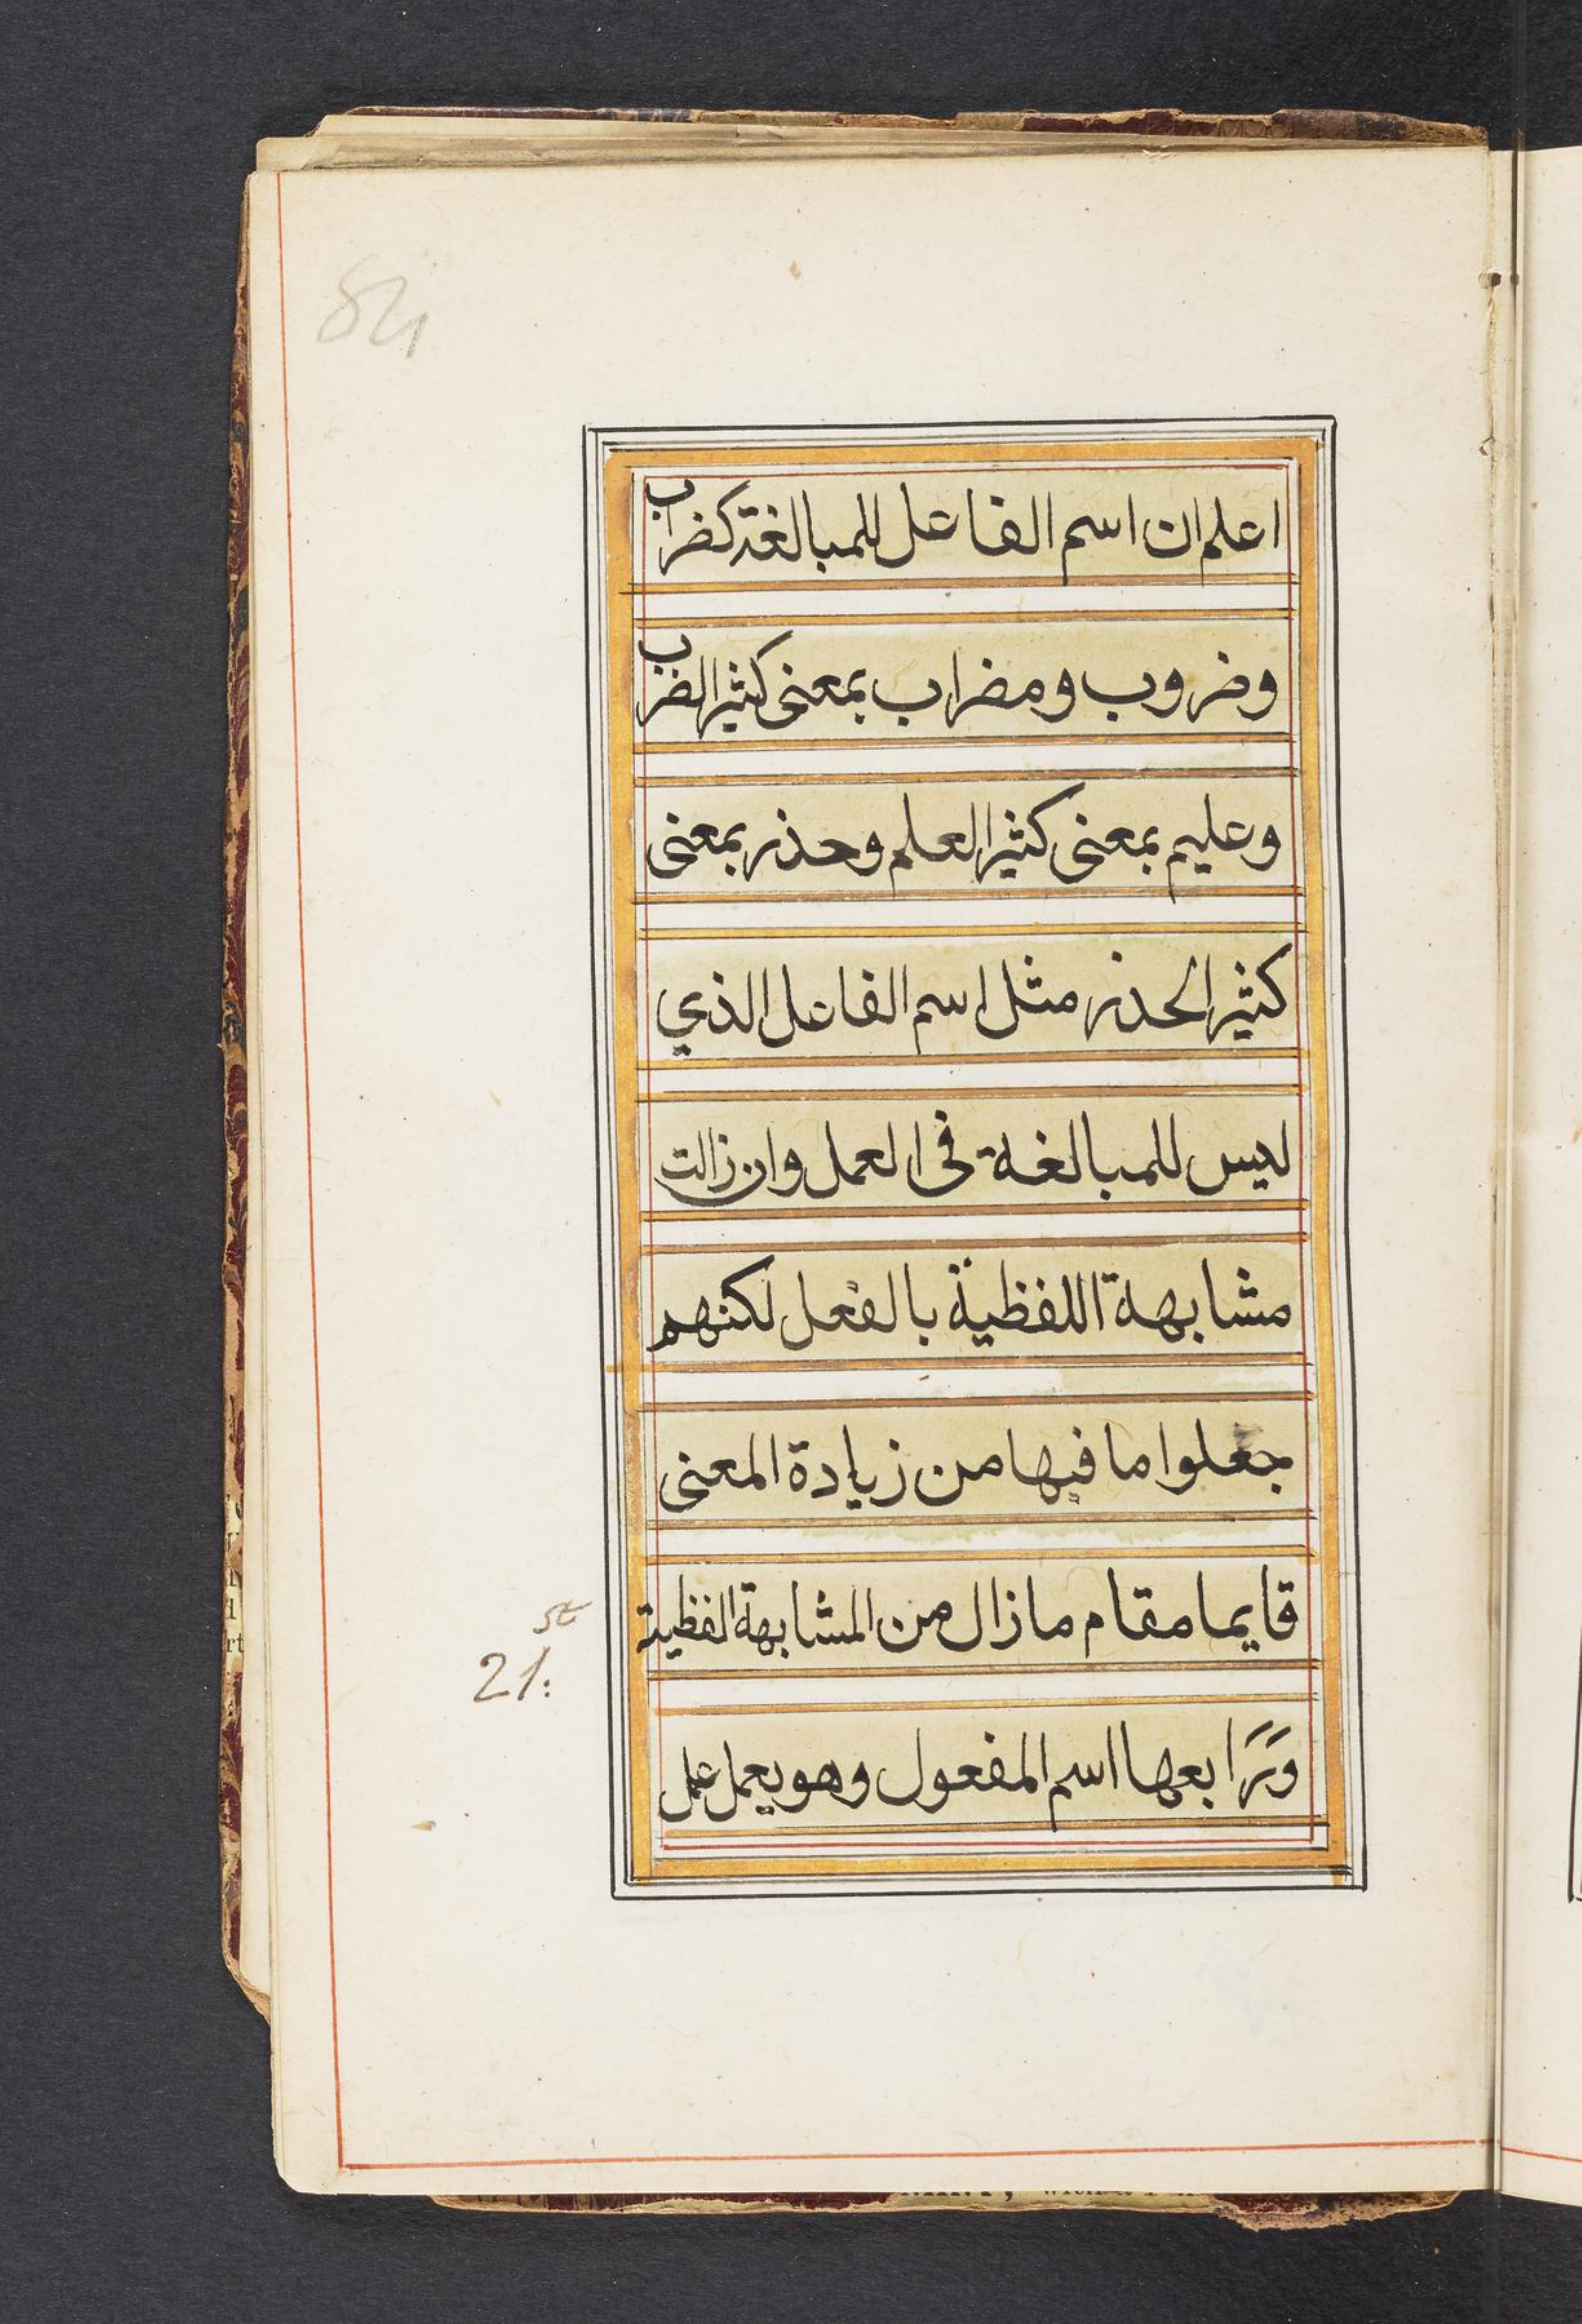 اعلم ان اسم الفاعل للمبالغة كضراب
وضروب ومضراب بمعنى كثير الضرب
وعليم بمعنى كثير العلم وحذر بمعنى
كثير الحذر مثل اسم الفاعل الذي
ليس للمبالغة فى العمل وان زالت
مشابهة اللفظية بالفعل لكنهم
جعلوا ما فيها من زيادة المعنى
قايما مقام ما زال من المشابهة الفظية
وَرَابعها اسم المفعول وهو يعمل عمل
st
21: